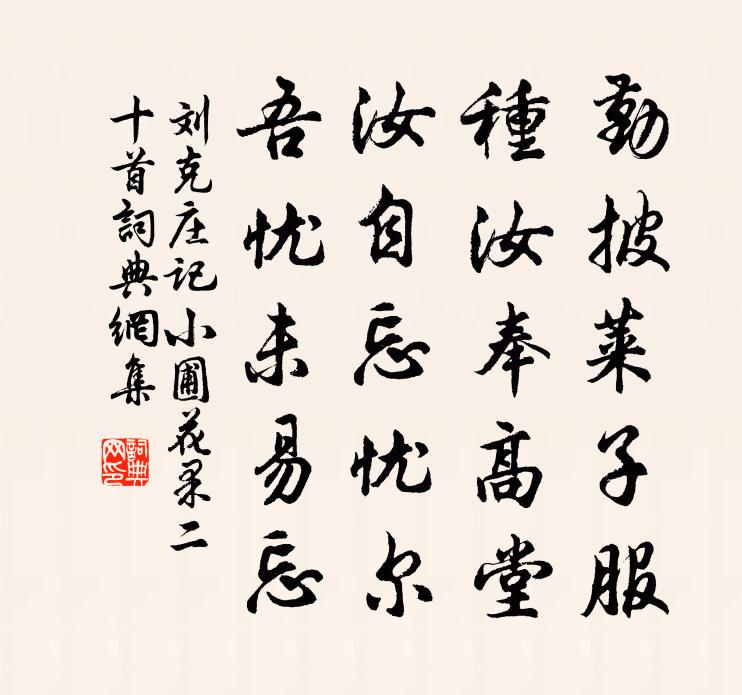 勤披莱子服
種汝奉高堂
汝自忘忧尔
吾忧未易忘
刘克庄记小圃花果二
十首詞典網集
詞典網印